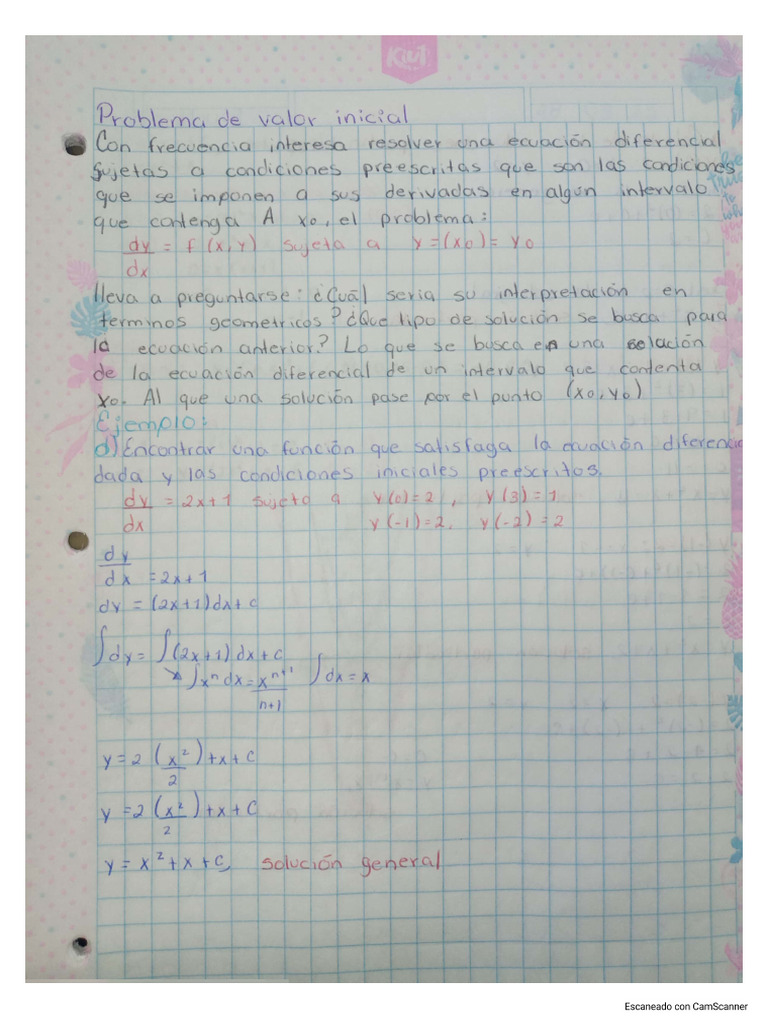 Kiut
Problema de valor inicial
Con frecuencia interesa resolver una ecuación diferencial
sujetas a condiciones preescritas que son las condiciones
que se imponen a sus derivadas en algun intervalo
que contenga A x₀, el problema:
dy/dx = f(x,y) sujeta a y=(x₀)= y₀
lleva a preguntarse: ¿Cuál seria su interpretación en
terminos geometricos? ¿Que tipo de solución se busca para
la ecuación anterior? Lo que se busca en una solación
de la ecuación diferencial de un intervalo que contenta
x₀. Al que una solución pase por el punto (x₀,y₀)
Ejemplo:
d) Encontrar una función que satisfaga la ecuación diferencia
dada y las condiciones iniciales preescritos.
dy/dx = 2x+1 sujeto a y(0)=2, y(3)=1
y(-1)=2, y(-2)=2
dy/dx = 2x+1
dy = (2x+1)dx+c
∫dy = ∫(2x+1)dx+c
∫xⁿdx = xⁿ⁺¹/n+1 ∫dx = x
y=2(x²/2)+x+c
y=2(x²/2)+x+c
y = x²+x+c, solución general
Escaneado con CamScanner